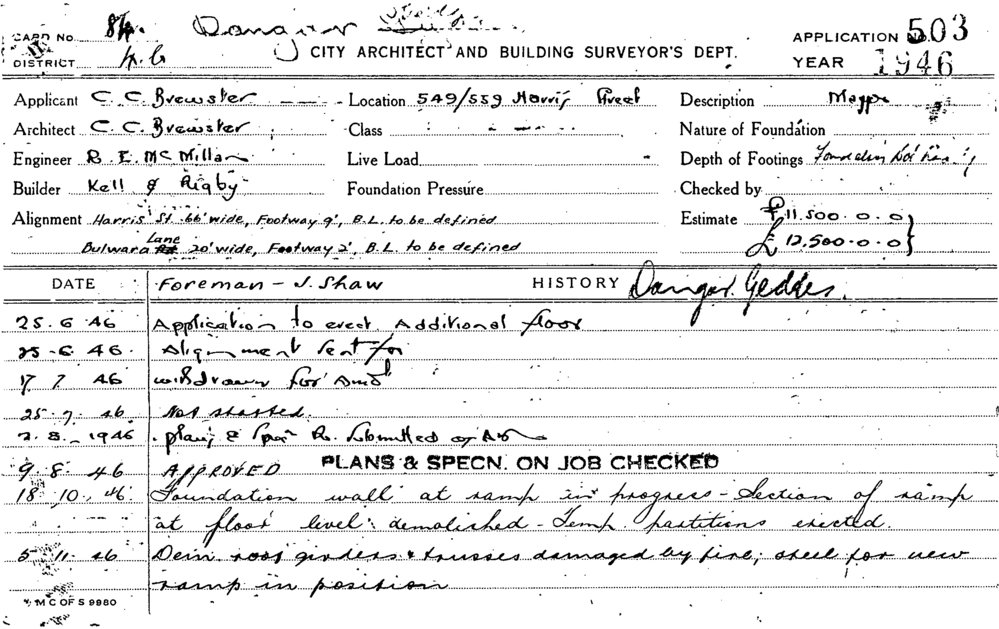 CARD No. 84. Dangar
CITY ARCHITECT AND BUILDING SURVEYOR'S DEPT.
APPLICATION No. 503
DISTRICT
YEAR 1946
Applicant C. C. Brewster Location 549/559 Harris Street Description
Architect C. C. Brewster Class Nature of Foundation
Engineer R. E. McMillan Live Load Depth of Footings
Builder Kell & Rigby Foundation Pressure Checked by
Alignment Harris St. 66' wide, Footway 9', B.L. to be defined Estimate £11.500.0.0
Bulwara Lane 20' wide, Footway 2', B.L. to be defined £12,500.0.0
DATE Foreman - J. Shaw HISTORY Dangar. Geddes.
25.6.46 Application to erect Additional floor
25.6.46. Alignment sent for
17.7.46 withdrawn for Amdt
25.7.46 Not started.
2.8.1946 plans & Submitted
9.8.46 APPROVED PLANS & SPECN. ON JOB CHECKED
18.10.46 Foundation wall at ramp in progress - Section of ramp
at floor level demolished - Temp partitions erected.
5.11.46 Dem roof girders & trusses damaged by fire; steel for new
ramp in position
M C OF S 9980